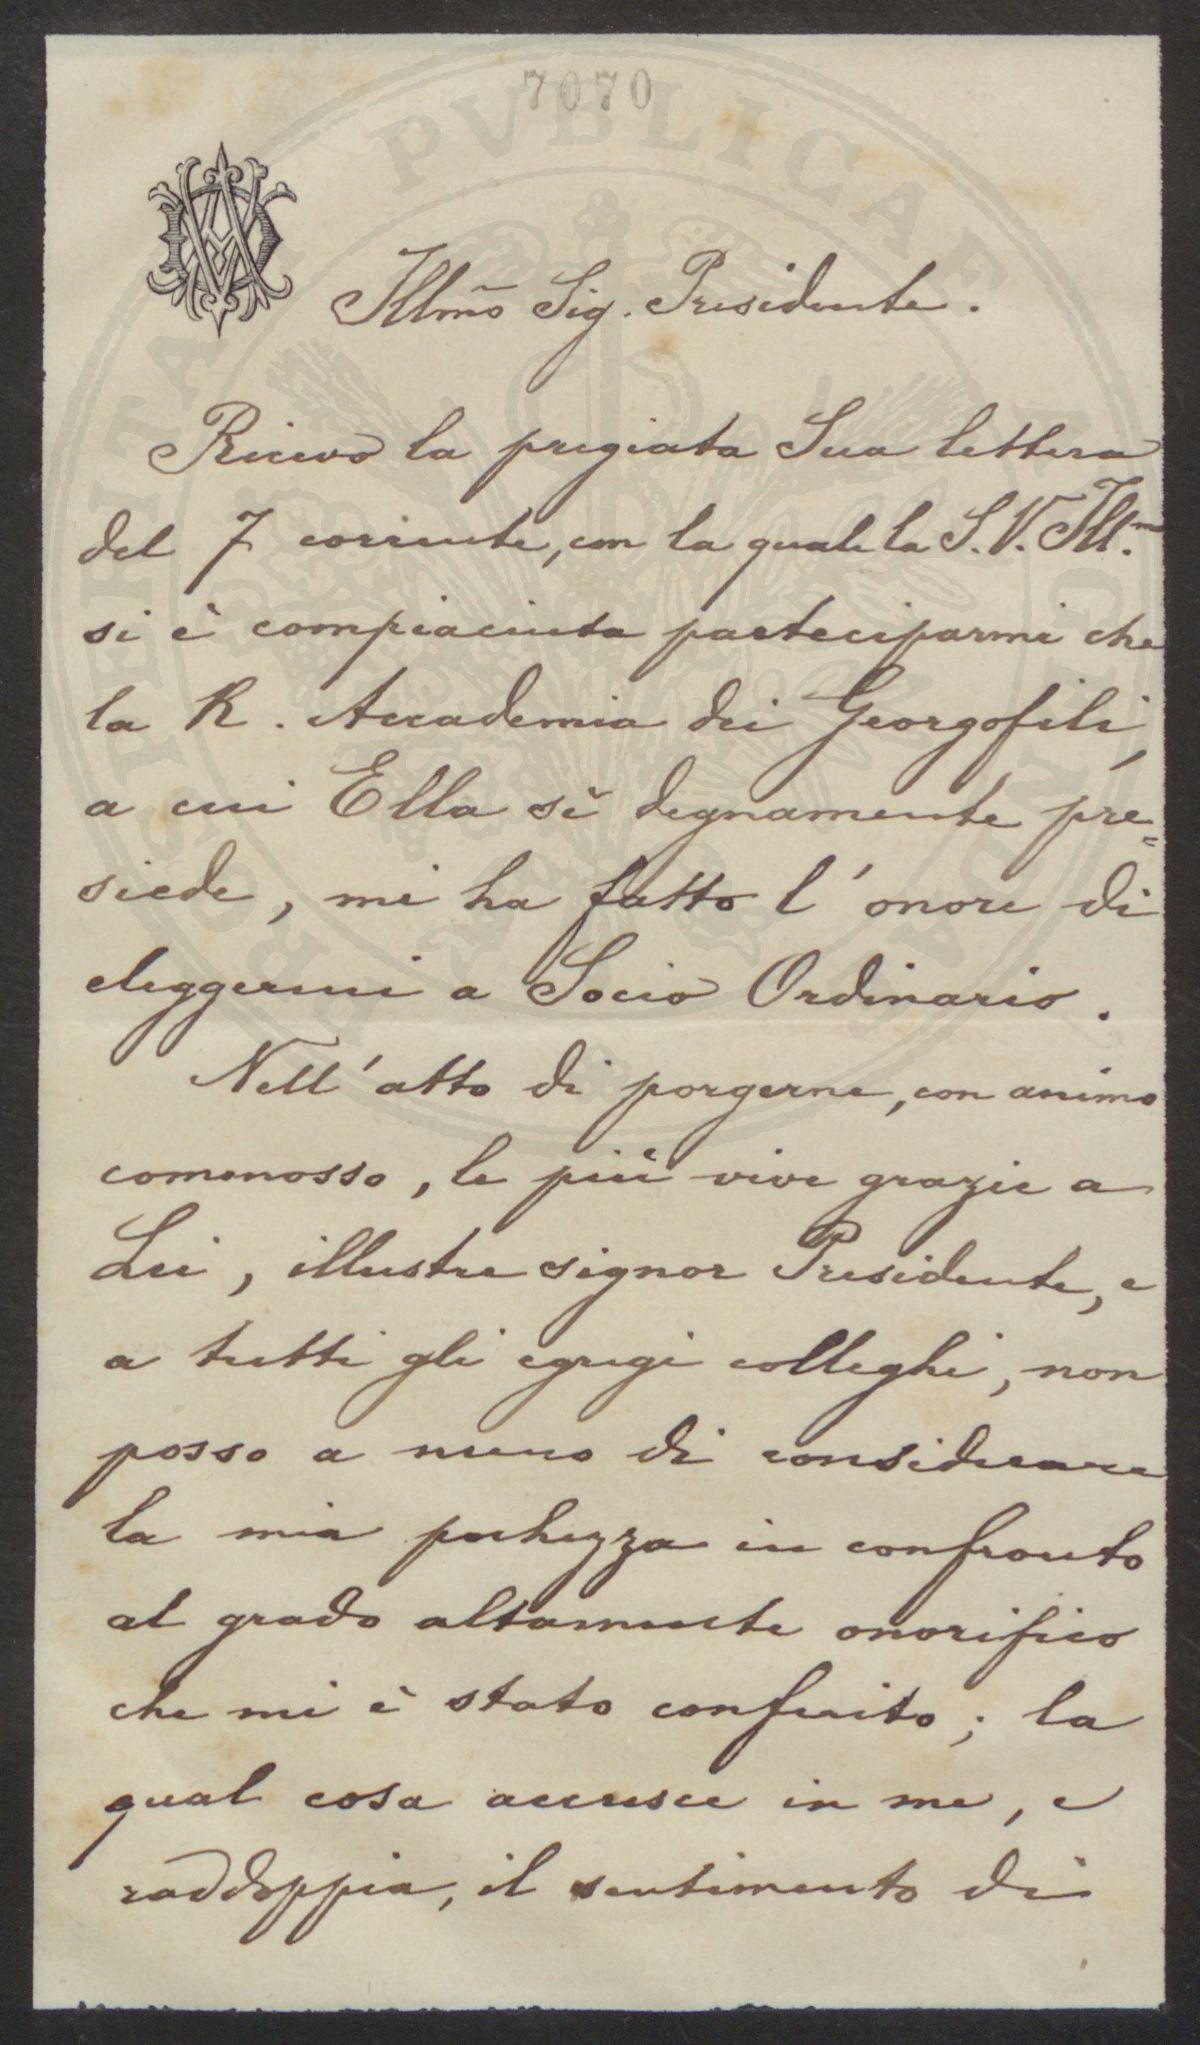 7070
Illm̃o Sig. Presidente.
Ricevo la pregiata Sua lettera
del 7 corrente, con la quale la S. V. Ill.ma
si è compiaciuta parteciparmi che
la R. Accademia dei Georgofili,
a cui Ella sì degnamente pre=
siede, mi ha fatto l'onore di
eleggermi a Socio Ordinario.
Nell'atto di porgerne, con animo
commosso, le più vive grazie a
Lei, illustre signor Presidente, e
a tutti gli egregi colleghi, non
posso a meno di considerare
la mia pochezza in confronto
al grado altamente onorifico
che mi è stato conferito; la
qual cosa accresce in me, e
raddoppia, il sentimento di